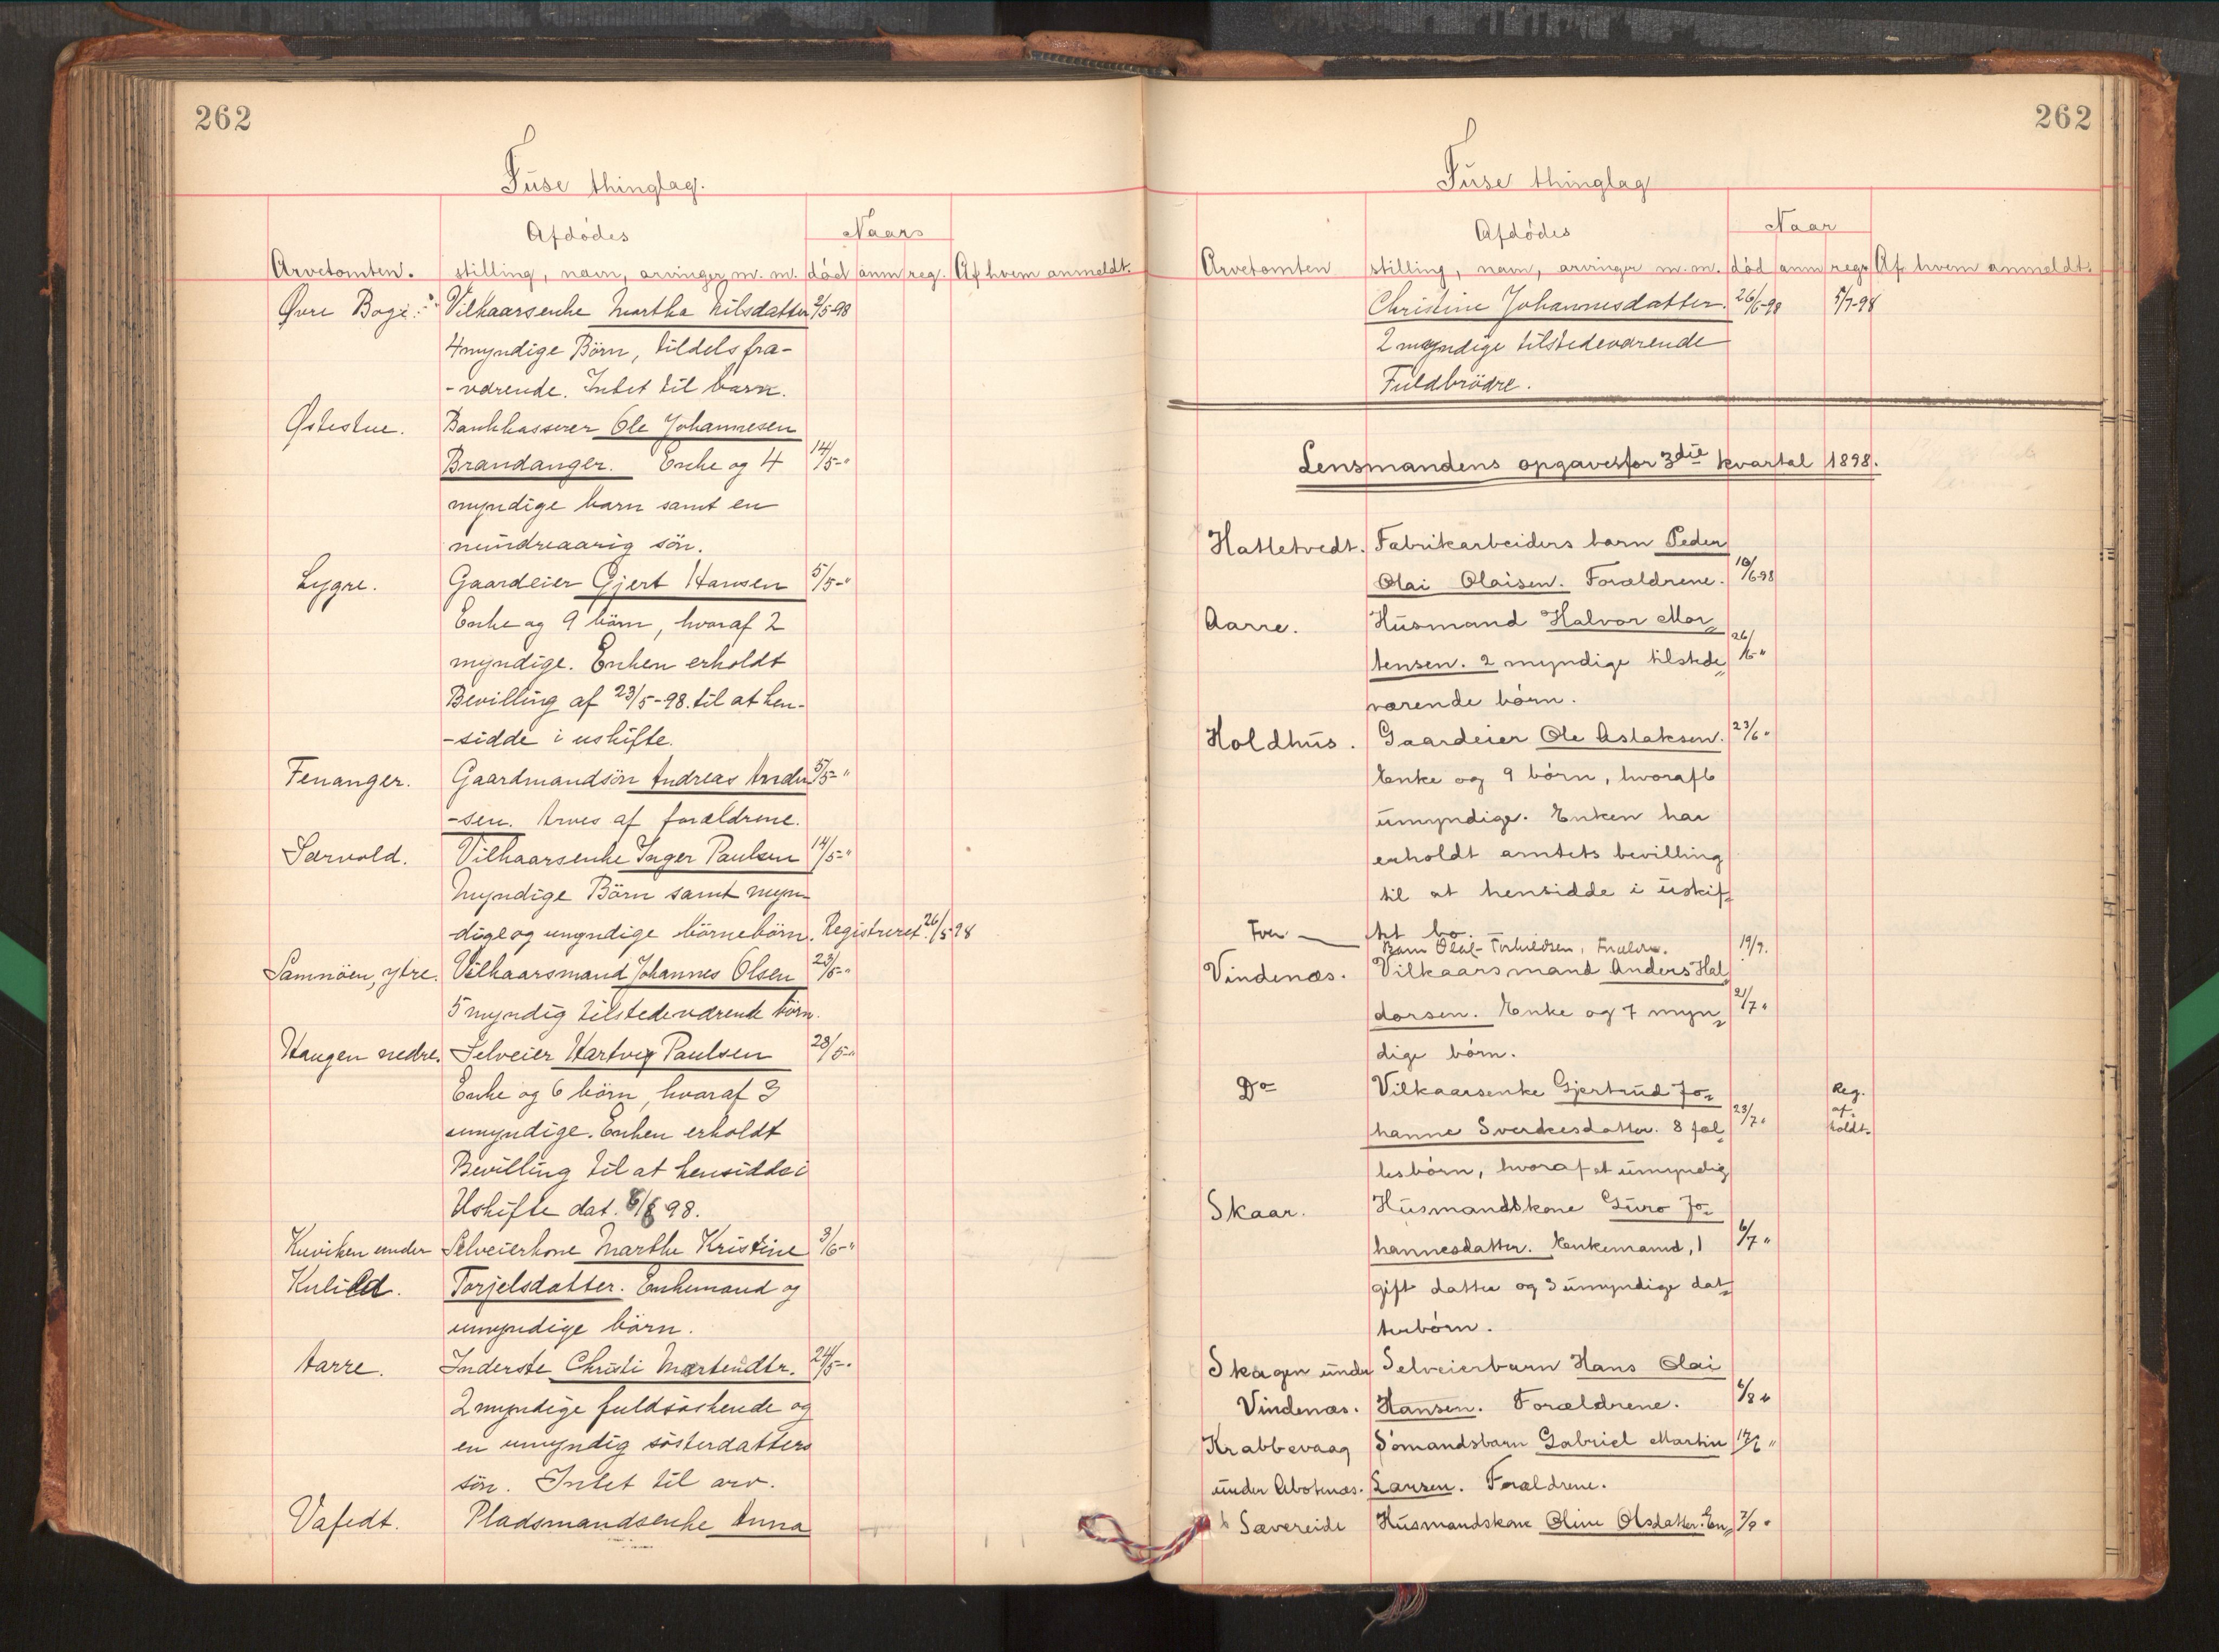 262
Fuse thinglag.
Afdödes
Naar
Arvetomten. stilling, navn, arvinger m. m. död anm reg. Af hvem anmeldt.
Øvre Boge Vilkaarsenke Martha Nilsdatter 2/5-98
4 myndige Börn, tildels fra-
-værende. Intet til barn.
Østestue. Bankkasserer Ole Johannesen
Brandanger. Enke og 4 14/5-"
myndige barn samt en
mindreaarig sön.
Lygre. Gaardeier Gjert Hansen 5/5-"
Enke og 9 börn, hvoraf 2
myndige. Enken erholdt
Bevilling af 23/5-98. til at hen-
-sidde i uskifte.
Fenanger. Gaardmandsön Andreas Andr 5/5-"
-sen. Arves af forældrene.
Særvold. Vilkaarsenke Inger Paulsen 14/5-"
Myndige Börn samt myn-
dige og umyndige börnebörn. Registreret. 26/5 98
Samnöen, ytre. Vilkaarsmand Johannes Olsen 23/5-"
5 myndig tilstedeværende börn.
Haugen nedre. Selveier Hartvig Paulsen 28/5-"
Enke og 6 börn, hvoraf 3
umyndige. Enken erholdt
Bevilling til at hensidde i
Uskifte dat. 6/6 98.
Kuviken under Selveierkone Marthe Kristine 3/6-"
Kulild. Torjelsdatter. Enkemand og
umyndige börn.
Aarre. Inderste Christi Mortendtr. 24/5-"
2 myndige fuldsöskende og
en umyndig sösterdatters
sön. Intet til arv.
Vafedt. Pladsmandsenke Anna
262
Fuse thinglag
Afdödes
Naar
Arvetomten stilling, navn, arvinger m. m. död anm regs Af hvem anmeldt.
Christine Johannesdatter. 26/6-98 5/7-98
2 myndige tilstedeværende
Fuldbrödre.
Lensmandens opgave for 3die kvartal 1898.
Hatletvedt. Fabrikarbeiders barn Peder
Olai Olaisen. Forældrene. 10/6-98
Aarre. Husmand Halvor Mor„
tensen. 2 myndige tilstede„ 26/6 "
værende börn.
Holdhus. Gaardeier Ole Aslaksen. 23/6 "
Enke og 9 börn, hvoraf 6
umyndige. Enken har
erholdt amtets bevilling
til at hensidde i uskif„
tet bo.
Barn Olai Torkildsen, Forældre. 19/7.
Vindenæs. Vilkaarsmand Anders Hal„
dorsen. Enke og 7 myn„ 21/7 "
dige börn.
Do Vilkaarsenke Gjertrud Jo„ Reg.
hanne Sverkesdatter. 8 fæl„ 23/7 " af-
holdt.
lesbörn, hvoraf et umyndig
Skaar. Husmandskone Guro Jo„
hannesdatter. Enkemand, 1 6/7 "
gift datter og 3 umyndige dat„
terbörn.
Skagen under Selveierbarn Hans Olai
Vindenæs. Hansen. Forældrene. 6/8 "
Krabbevaag Sömandsbarn Gabriel Martin 17/6 "
under Abotnæs. Larsen. Forældrene.
Sævereide Husmandskone Oline Olsdatter. En„ 7/9 "